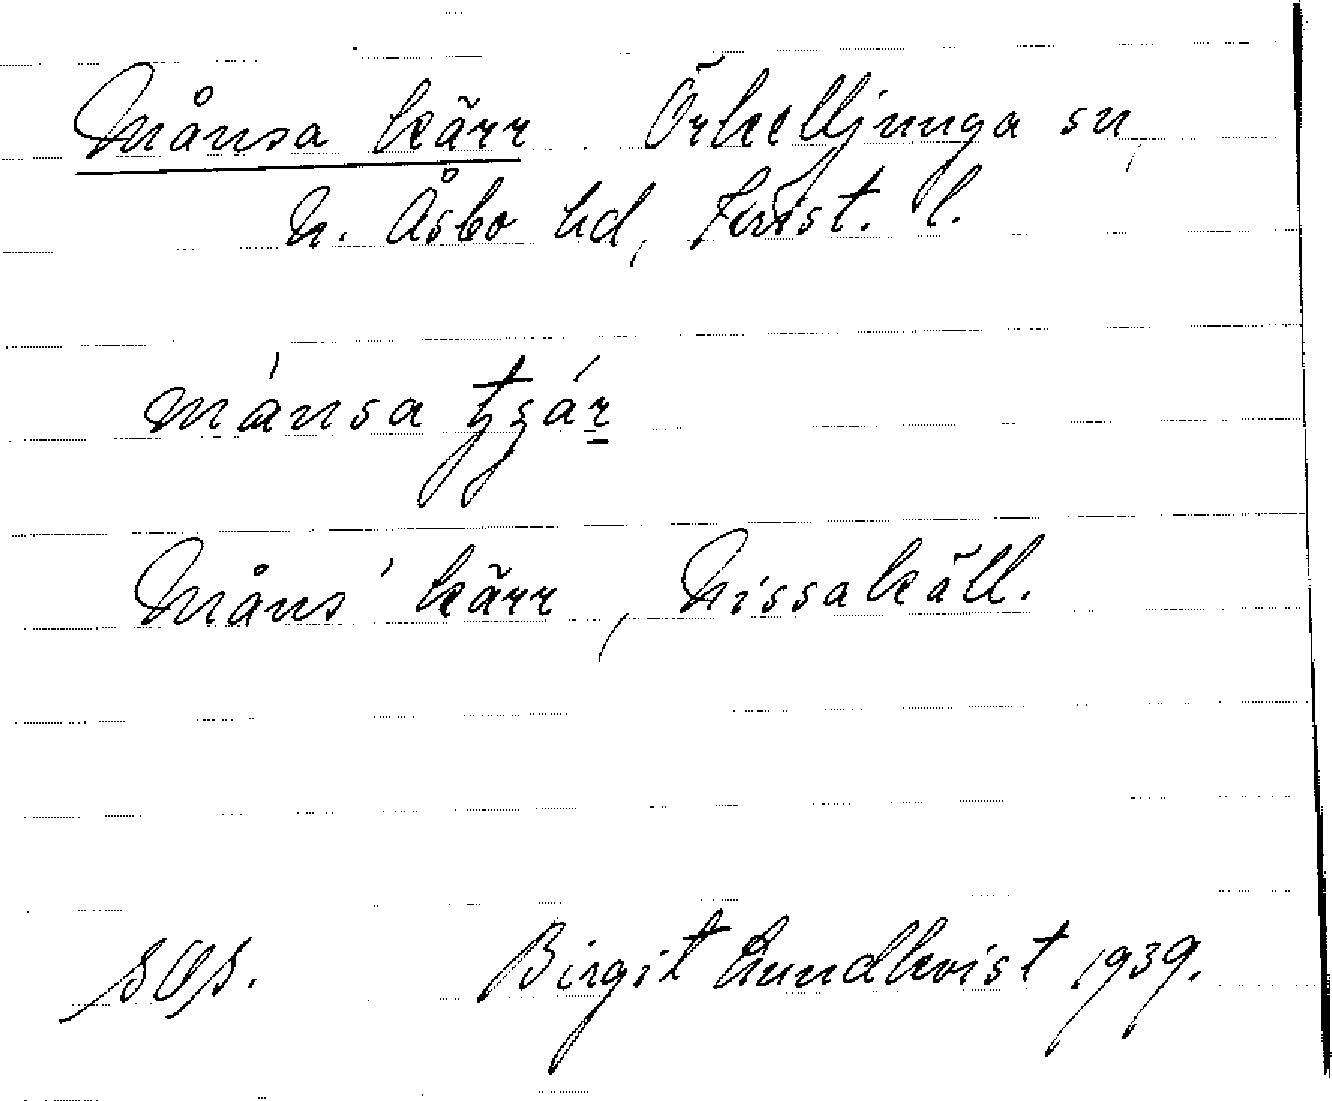 Månsa kärr Örkelljunga sn,
N. Åsbo hd, Krist. l.
månsa
Måns' kärr, Nissakäll.
Birgit Lundkvist 1939.